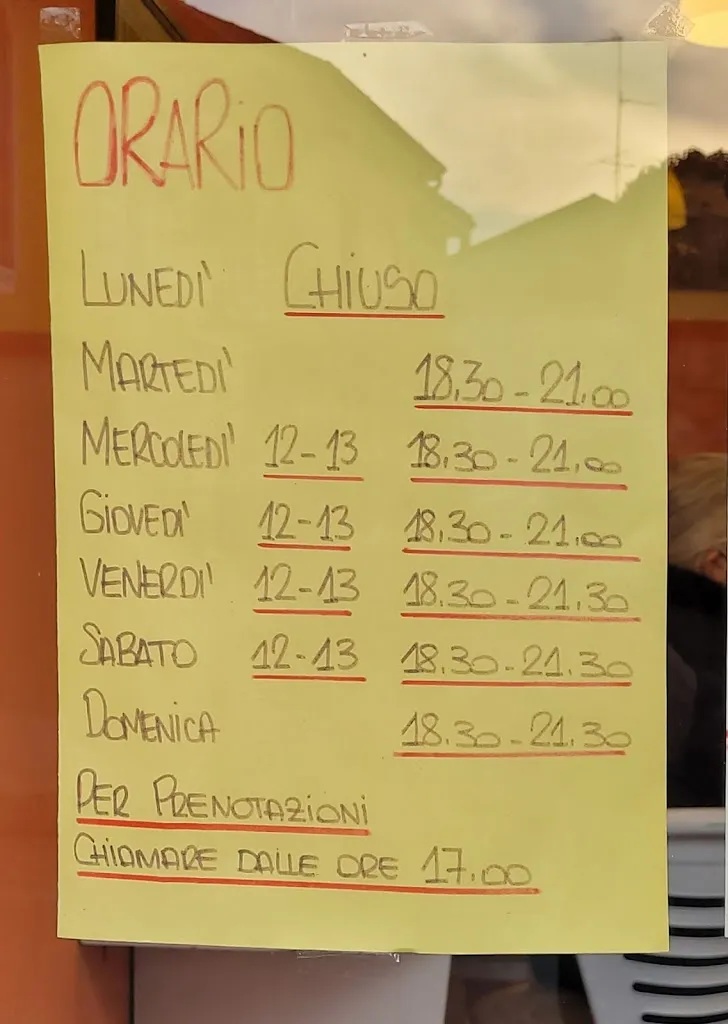 ORARIO
LUNEDI' CHIUSO
MARTEDI' 18.30 - 21.00
MERCOLEDI' 12-13 18.30 - 21.00
GIOVEDI' 12-13 18.30 - 21.00
VENERDI' 12-13 18.30 - 21.30
SABATO 12-13 18.30 - 21.30
DOMENICA 18.30 - 21.30
PER PRENOTAZIONI
CHIAMARE DALLE ORE 17.00